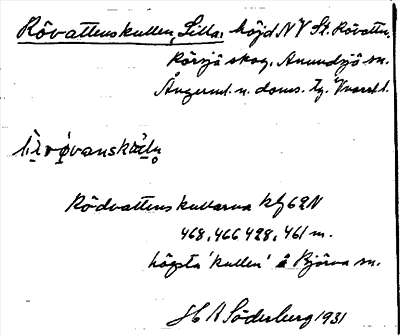 Rövattenskullen, Lilla. höjd NV St. Rövattn.
Rörsjö skog. Anundsjö sn.
Ångerml. n. doms.
Rödvattenskullarna kbl 62N
468, 466 428, 461 m.
högsta 'kullen' å Björna sn.
H A Söderberg 1931